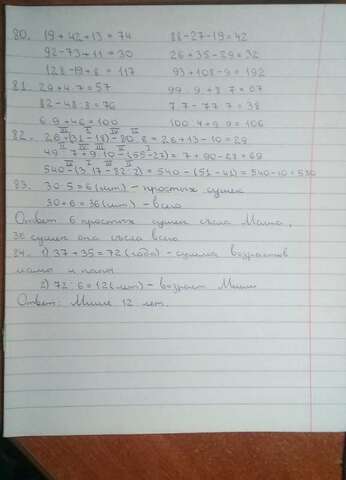 80. 19 + 42 + 13 = 74 88 - 27 - 19 = 42
92 - 73 + 11 = 30 26 + 35 - 29 = 32
128 - 19 + 8 = 117 93 + 108 - 9 = 192
81. 29 + 4 · 7 = 57 99 : 9 + 8 · 7 = 67
82 - 48 : 8 = 76 7 · 7 - 77 : 7 = 38
6 · 9 + 46 = 100 100 : 4 + 9 · 9 = 106
82. 26 + (31 - 18) - 80 : 8 = 26 + 13 - 10 = 29
49 : 7 + 9 · 10 - (55 - 27) = 7 + 90 - 28 = 69
540 - (3 · 17 - 82 : 2) = 540 - (51 - 41) = 540 - 10 = 530
83. 30 : 5 = 6 (шт) - простых
30 + 6 = 36 (шт) - всего
Ответ: 6 простых съела Маша,
36 она съела всего
84. 1) 37 + 35 = 72 (года) - сумма возрастов
мамы и папы
2) 72 : 6 = 12 (лет) - возраст Миши
Ответ: Мише 12 лет.